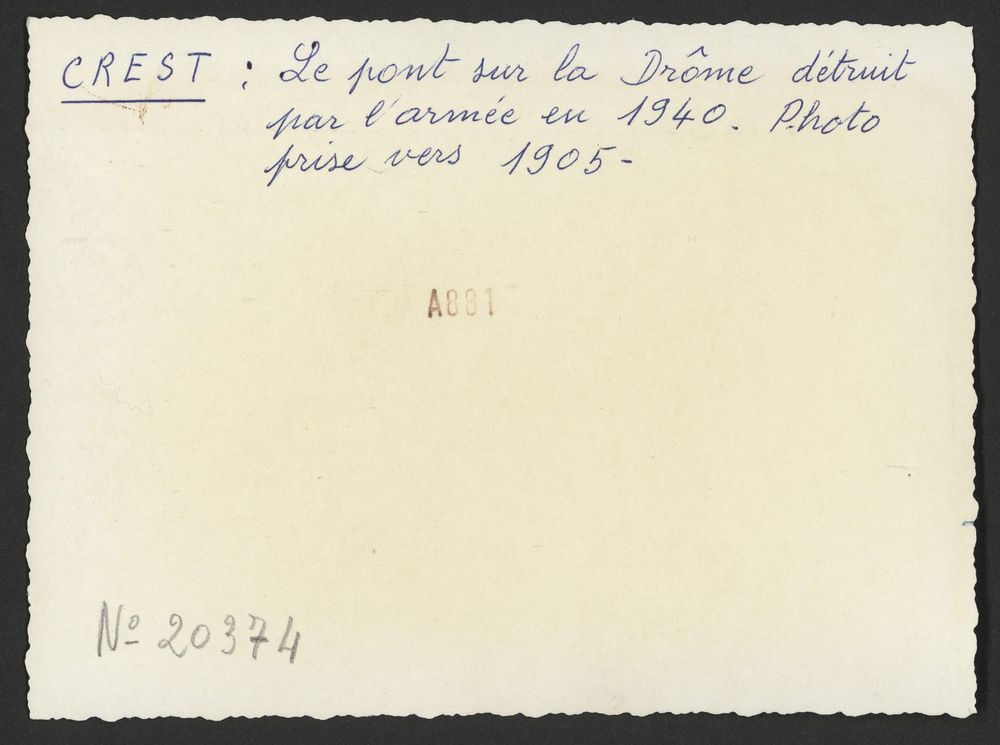 CREST : Le pont sur la Drôme détruit
par l'armée en 1940. Photo
prise vers 1905-
A881
Nº 20374